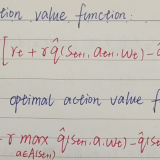 tion value function:
[r_t + r q̂(s_{t+1}, a_{t+1}, w_t) - q̂
optimal action value f
r max_{a∈A(s_{t+1})} q̂(s_{t+1}, a, w_t) - q̂(s_t